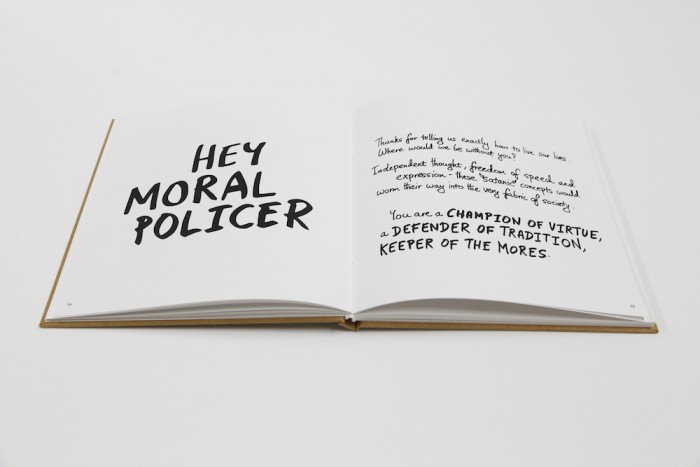 HEY
MORAL
POLICER
Thanks for telling us exactly how to live our lives.
Where would we be without you?
Independent thought, freedom of speech and
expression - these "satanic" concepts would
worm their way into the very fabric of society
You are a CHAMPION OF VIRTUE,
a DEFENDER OF TRADITION,
KEEPER OF THE MORES.